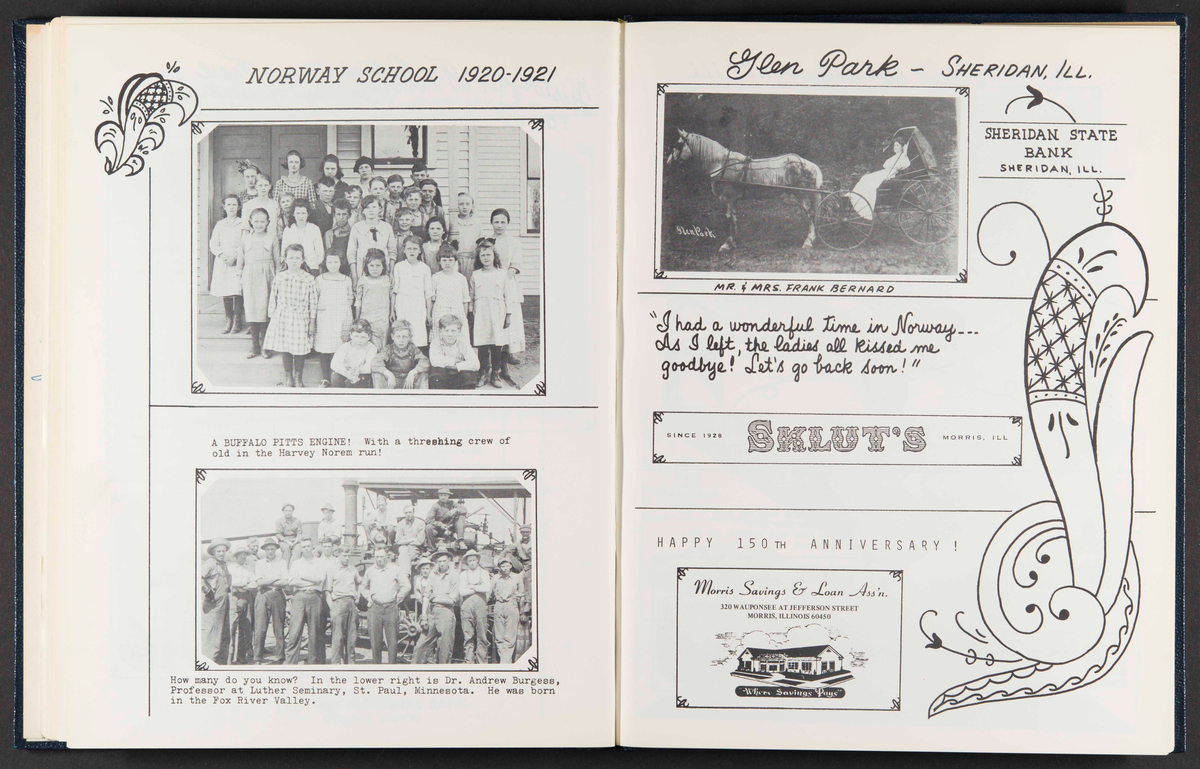 NORWAY SCHOOL 1920-1921
A BUFFALO PITTS ENGINE! With a threshing crew of
old in the Harvey Norem run!
How many do you know? In the lower right is Dr. Andrew Burgess,
Professor at Luther Seminary, St. Paul, Minnesota. He was born
in the Fox River Valley.
Glen Park - SHERIDAN, ILL.
Glen Park.
SHERIDAN STATE
BANK
SHERIDAN, ILL.
MR. & MRS. FRANK BERNARD
"I had a wonderful time in Norway---
As I left, the ladies all kissed me
goodbye! Let's go back soon!"
SINCE 1928 SKLUT'S MORRIS, ILL
HAPPY 150TH ANNIVERSARY!
Morris Savings & Loan Ass'n.
320 WAUPONSEE AT JEFFERSON STREET
MORRIS, ILLINOIS 60450
"Where Savings Pays"